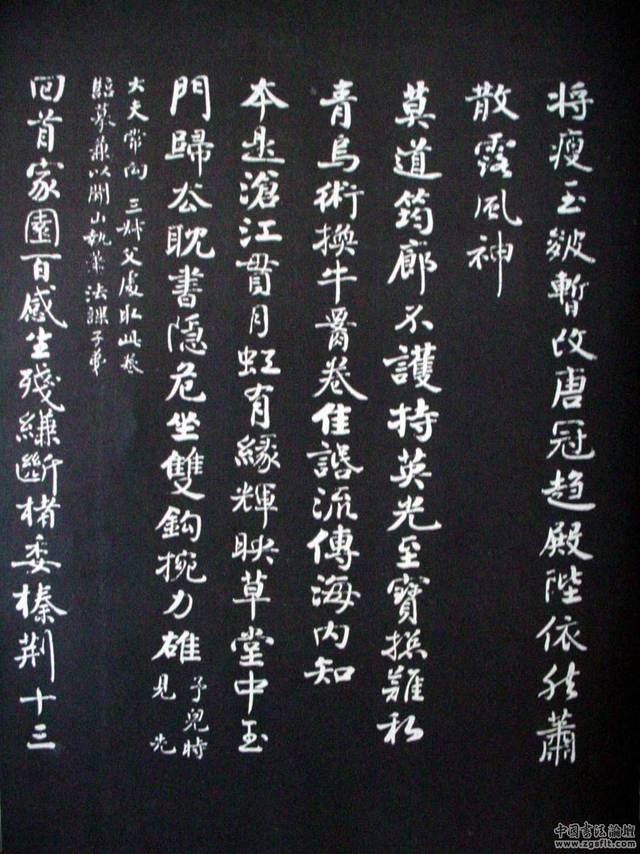 将瘦玉皴暫改唐冠趋殿陛依然蕭
散露風神
莫道筠廊不護持英光至寶撰難私
青烏術換牛晷卷佳話流傳海内知
本是滄江貫月虹有緣輝映草堂中玉
門歸公耽書隐危坐雙鈎捥力雄予兒時
見先
大夫常向三叔父處取此卷
臨摹兼以開山執筆法課子弟
回首家園百感生殘縑斷楮委榛荆十三
中国書法論壇
www.zgsflt.com